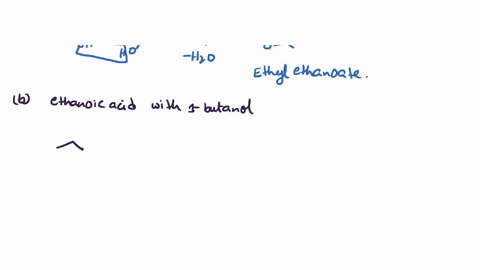 HO
-H2O
Ethyl ethanoate.
(b) ethanoic acid with 1-butanol